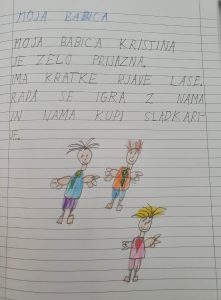 MOJA BABICA
MOJA BABICA KRISTINA
JE ZELO PRIJAZNA.
IMA KRATKE RJAVE LASE.
RADA SE IGRA Z NAMA
IN NAMA KUPI SLADKARI-
JE.